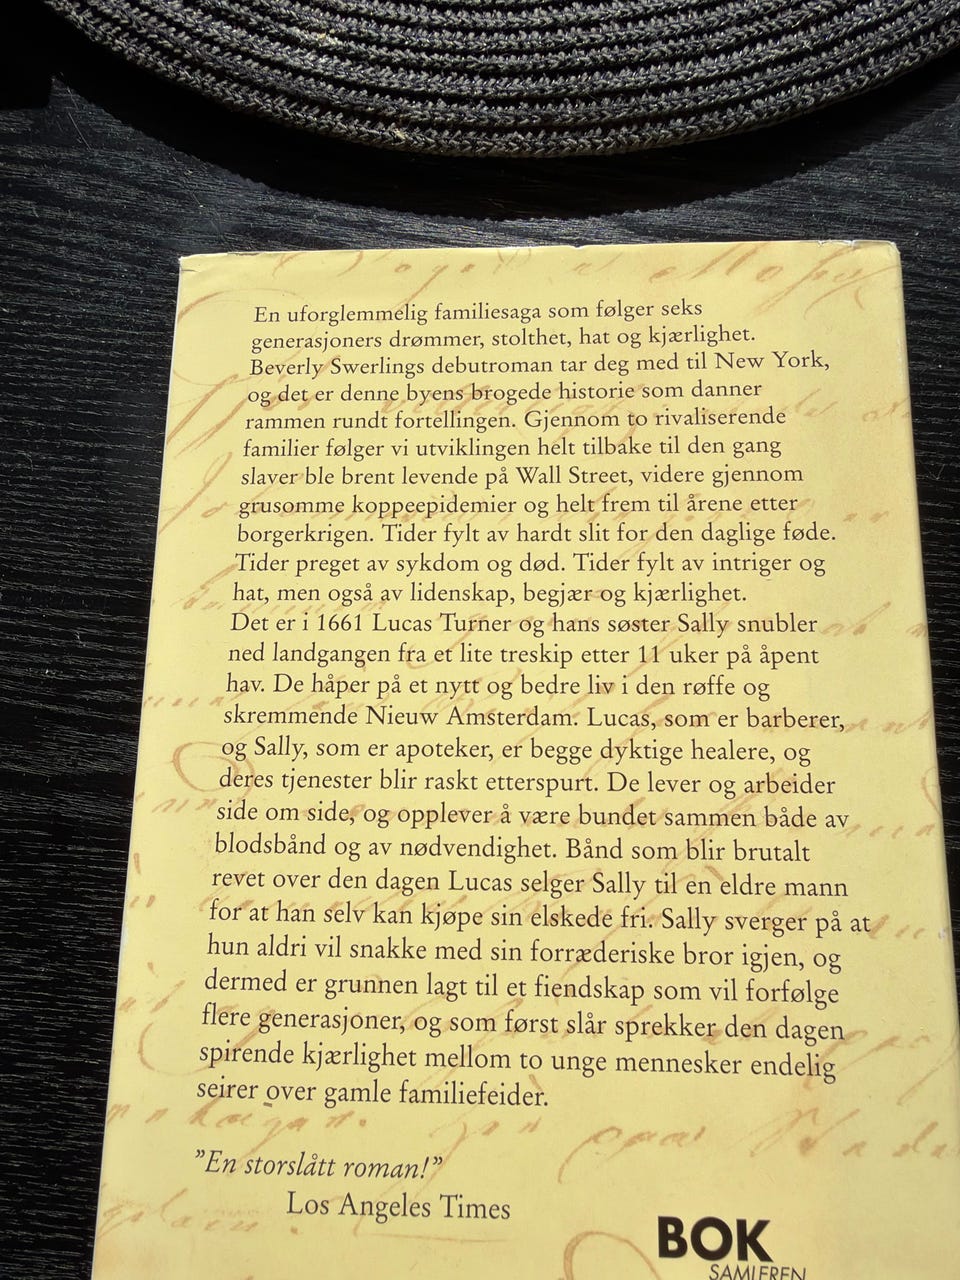 En uforglemmelig familiesaga som følger seks
generasjoners drømmer, stolthet, hat og kjærlighet.
Beverly Swerlings debutroman tar deg med til New York,
og det er denne byens brogede historie som danner
rammen rundt fortellingen. Gjennom to rivaliserende
familier følger vi utviklingen helt tilbake til den gang
slaver ble brent levende på Wall Street, videre gjennom
grusomme koppeepidemier og helt frem til årene etter
borgerkrigen. Tider fylt av hardt slit for den daglige føde.
Tider preget av sykdom og død. Tider fylt av intriger og
hat, men også av lidenskap, begjær og kjærlighet.
Det er i 1661 Lucas Turner og hans søster Sally snubler
ned landgangen fra et lite treskip etter 11 uker på åpent
hav. De håper på et nytt og bedre liv i den røffe og
skremmende Nieuw Amsterdam. Lucas, som er barberer,
og Sally, som er apoteker, er begge dyktige healere, og
deres tjenester blir raskt etterspurt. De lever og arbeider
side om side, og opplever å være bundet sammen både av
blodsbånd og av nødvendighet. Bånd som blir brutalt
revet over den dagen Lucas selger Sally til en eldre mann
for at han selv kan kjøpe sin elskede fri. Sally sverger på at
hun aldri vil snakke med sin forræderiske bror igjen, og
dermed er grunnen lagt til et fiendskap som vil forfølge
flere generasjoner, og som først slår sprekker den dagen
spirende kjærlighet mellom to unge mennesker endelig
seirer over gamle familiefeider.
"En storslått roman!"
Los Angeles Times
BOK
SAMLEREN